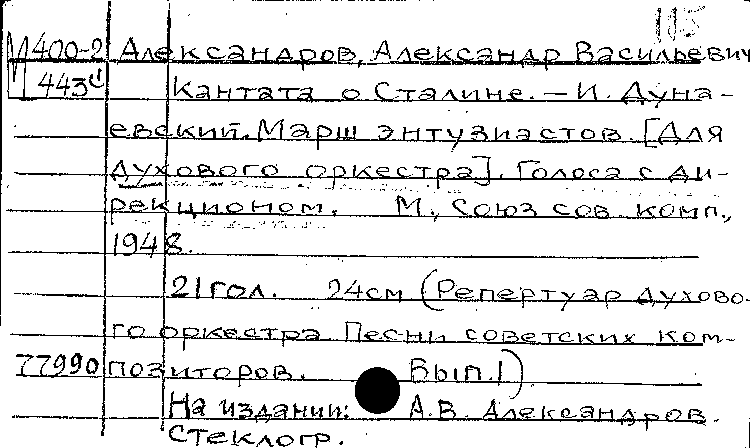 115
М400-2 Александров, Александр Васильевич
443 Кантата о Сталине. — И. Дуна-
евский. Марш энтузиастов. [Для
духового оркестра]. Голоса с ди-
рекционом. М., Союз сов. комп.,
1948.
21 гол. 24см (Репертуар духово-
го оркестра Песни советских ком-
77990 позиторов. Вып.1)
На издании: А.В. Александров.
Стеклогр.